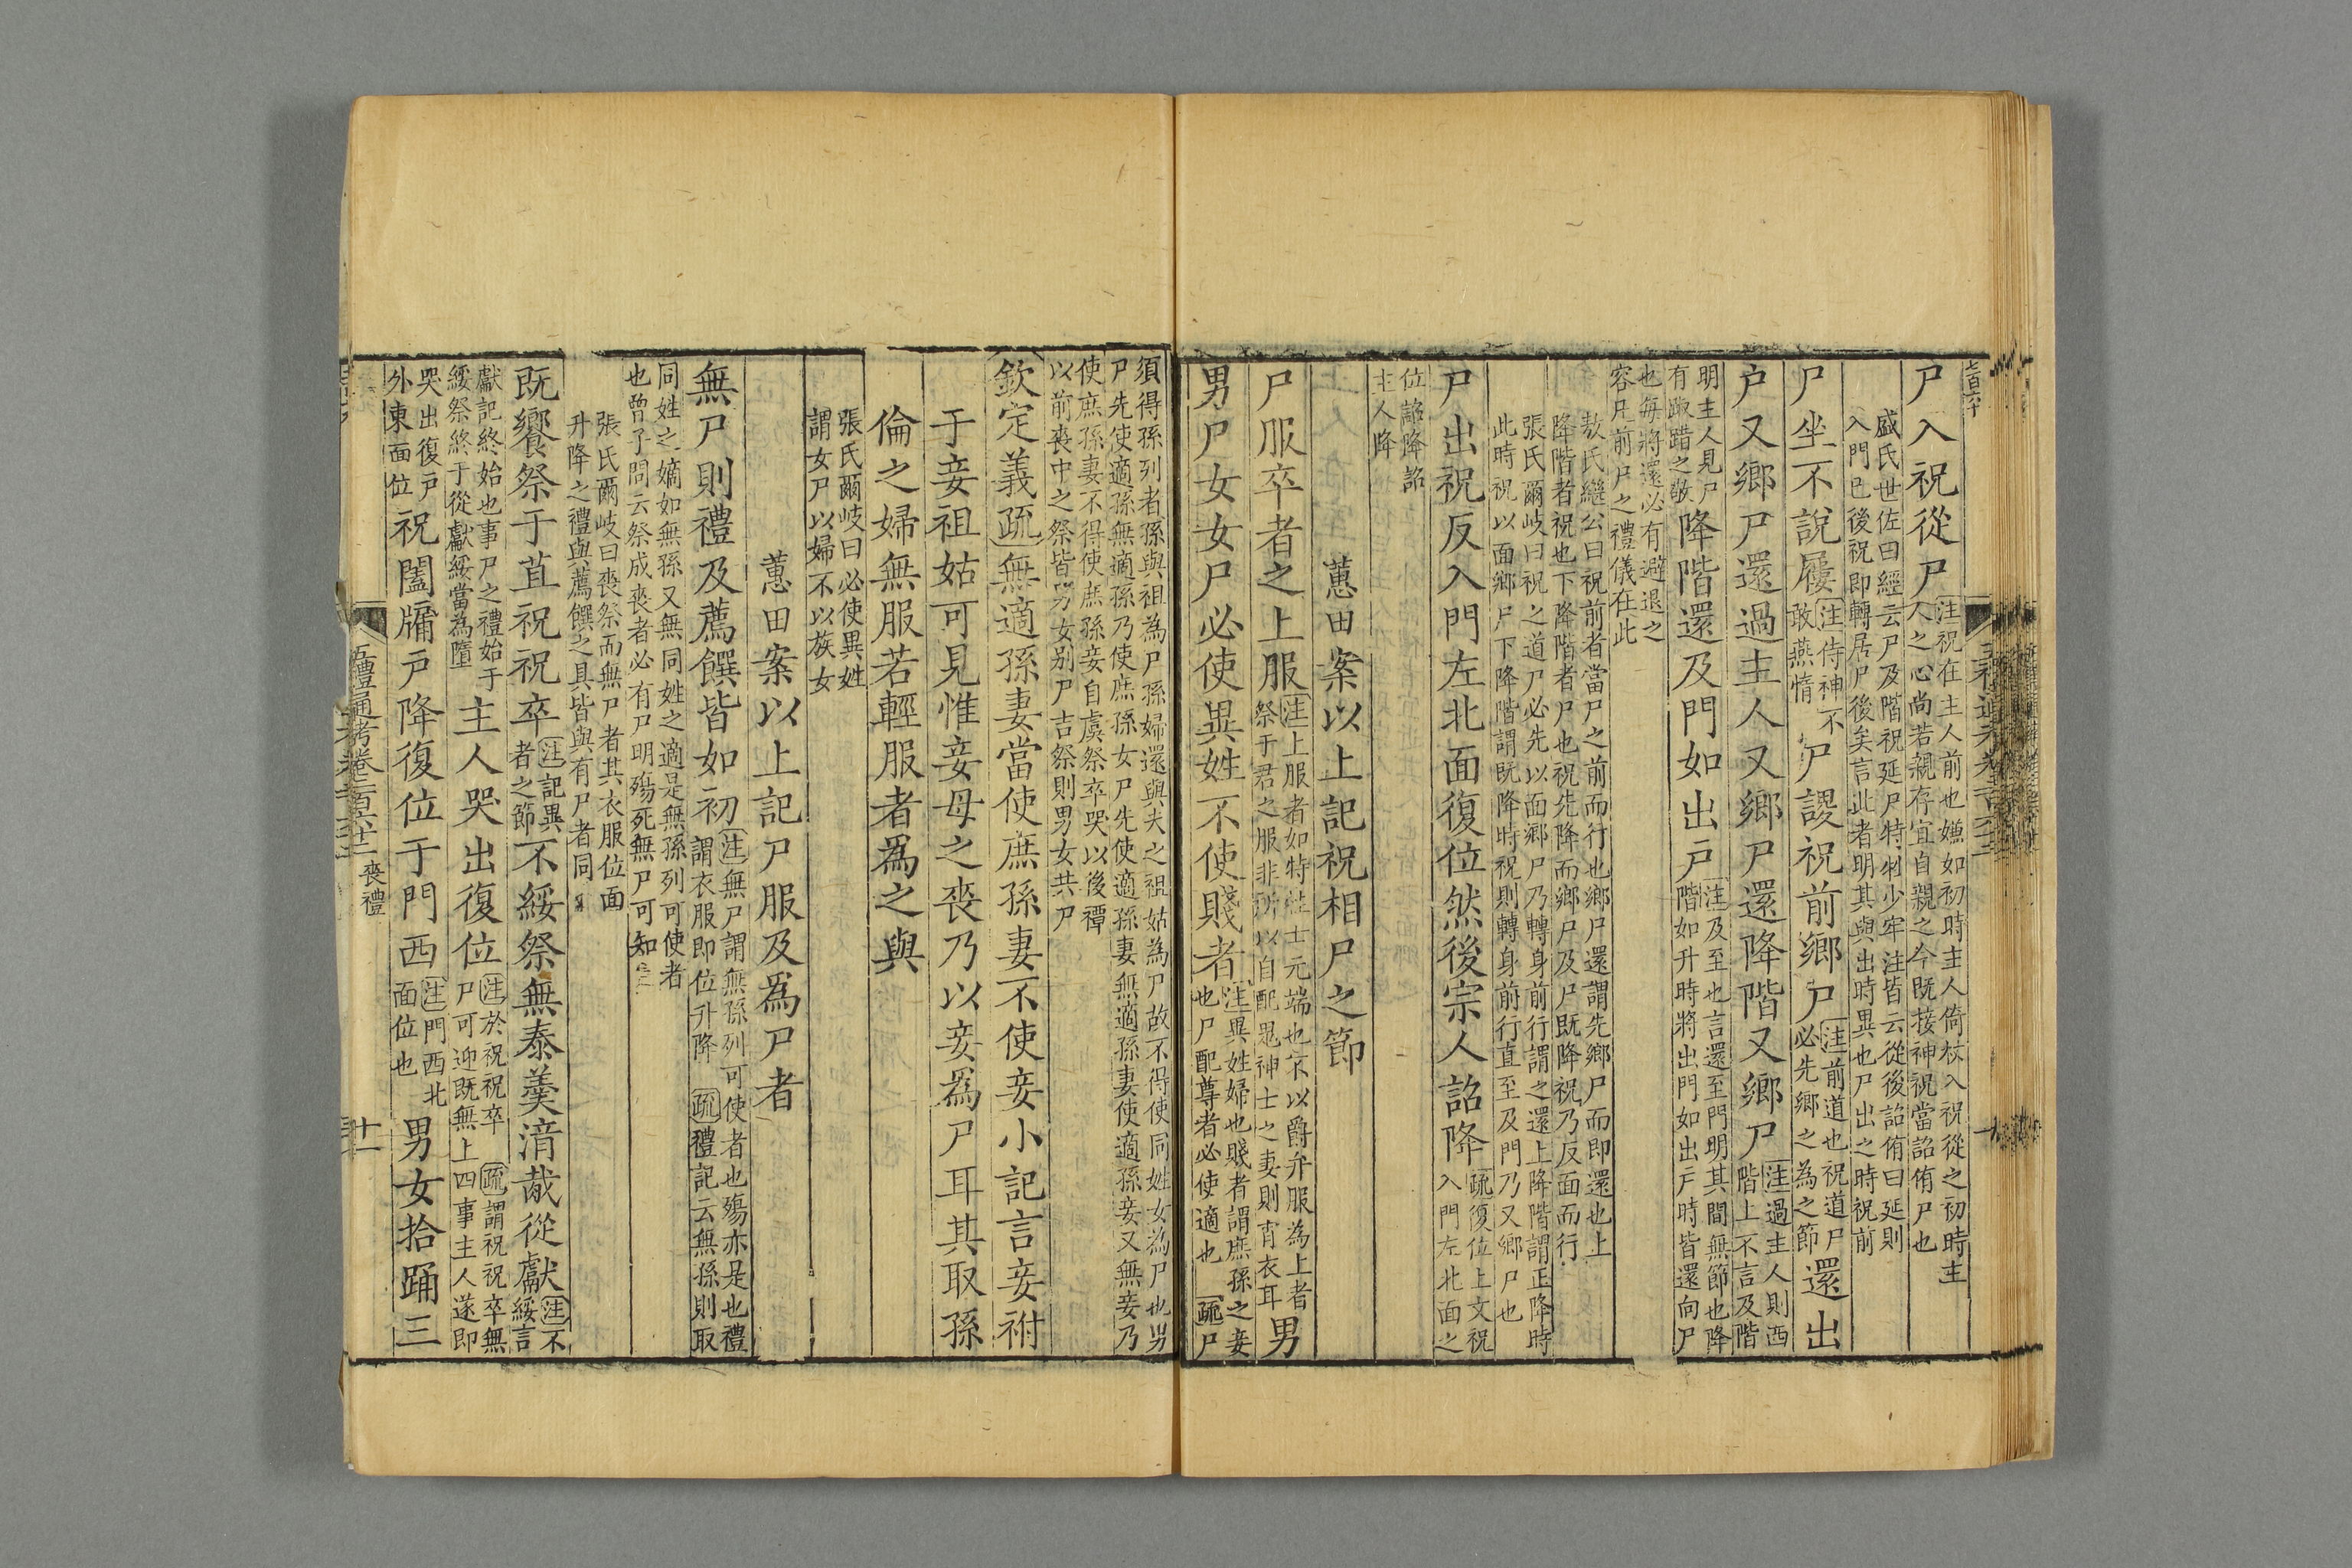 尸入祝從尸注祝在主人前也嫌如初時主人倚杖入祝從之初時主
人之心尚若親存宜自親之今既接神祝當詔侑尸也
盛氏世佐曰經云尸及階祝延尸特牲少牢注皆云從後詔侑曰延則
入門已後祝即轉居尸後矣言此者明其與出時異也尸出之時祝前
尸坐不說屨注侍神不敢燕惰尸謖祝前鄉尸注前道也祝道尸必先鄉之為之節還出
户又鄉尸還過主人又鄉尸還降階又鄉尸注過主人則西階上不言及階
明主人見尸有踧踖之敬降階還及門如出戸注及至也言還至門明其間無節也降階如升時將出門如出戸時皆還向尸
也每將還必有避退之容凡前尸之禮儀在此
敖氏繼公曰祝前者當尸之前而行也鄉尸還謂先鄉尸而即還也上
降階者祝也下降階者尸也祝先降而鄉尸及尸既降祝乃反面而行
張氏爾岐曰祝之道尸必先以面鄉尸乃轉身前行謂之還上降階謂正降時
此時祝以面鄉尸下降階謂既降時祝則轉身前行直至及門乃又鄉尸也
尸出祝反入門左北面復位然後宗人詔降疏復位上文祝入門左北面之
位詔降詔主人降
蕙田案以上記祝相尸之節
尸服卒者之上服注上服者如特牲士元端也不以爵弁服為上者祭于君之服非所以自配鬼神士之妻則宵衣耳男
男尸女女尸必使異姓不使賤者注異姓婦也賤者謂庶孫之妾也尸配尊者必使適也疏尸
須得孫列者孫與祖為尸孫婦還與夫之祖姑為尸故不得使同姓女為尸也男
尸先使適孫無適孫乃使庶孫女尸先使適孫妻無適孫妻使適孫妾又無妾乃
使庶孫妻不得使庶孫妾自虞祭卒哭以後禫
以前喪中之祭皆男女别尸吉祭則男女共尸
欽定義疏無適孫妻當使庶孫妻不使妾小記言妾祔
于妾祖姑可見惟妾母之喪乃以妾爲尸耳其取孫
倫之婦無服若輕服者爲之與
張氏爾岐曰必使異姓
謂女尸以婦不以族女
蕙田案以上記尸服及爲尸者
無尸則禮及薦饌皆如初注無尸謂無孫列可使者也殤亦是也禮謂衣服即位升降疏禮記云無孫則取
同姓之嫡如無孫又無同姓之適是無孫列可使者
也曾子問云祭成喪者必有尸明殤死無尸可知
張氏爾岐曰喪祭而無尸者其衣服位面
升降之禮與薦饌之具皆與有尸者同
既饗祭于苴祝祝卒注記異者之節不綏祭無泰羹湆胾從獻注不綏言
獻記終始也事尸之禮始于綏祭終于從獻綏當為墮主人哭出復位注於祝祝卒疏謂祝祝卒無尸可迎既無上四事主人遂即
哭出復戸外東面位祝闔牖戸降復位于門西注門西北面位也男女拾踊三
五禮通考卷二百六十二 喪禮 十一